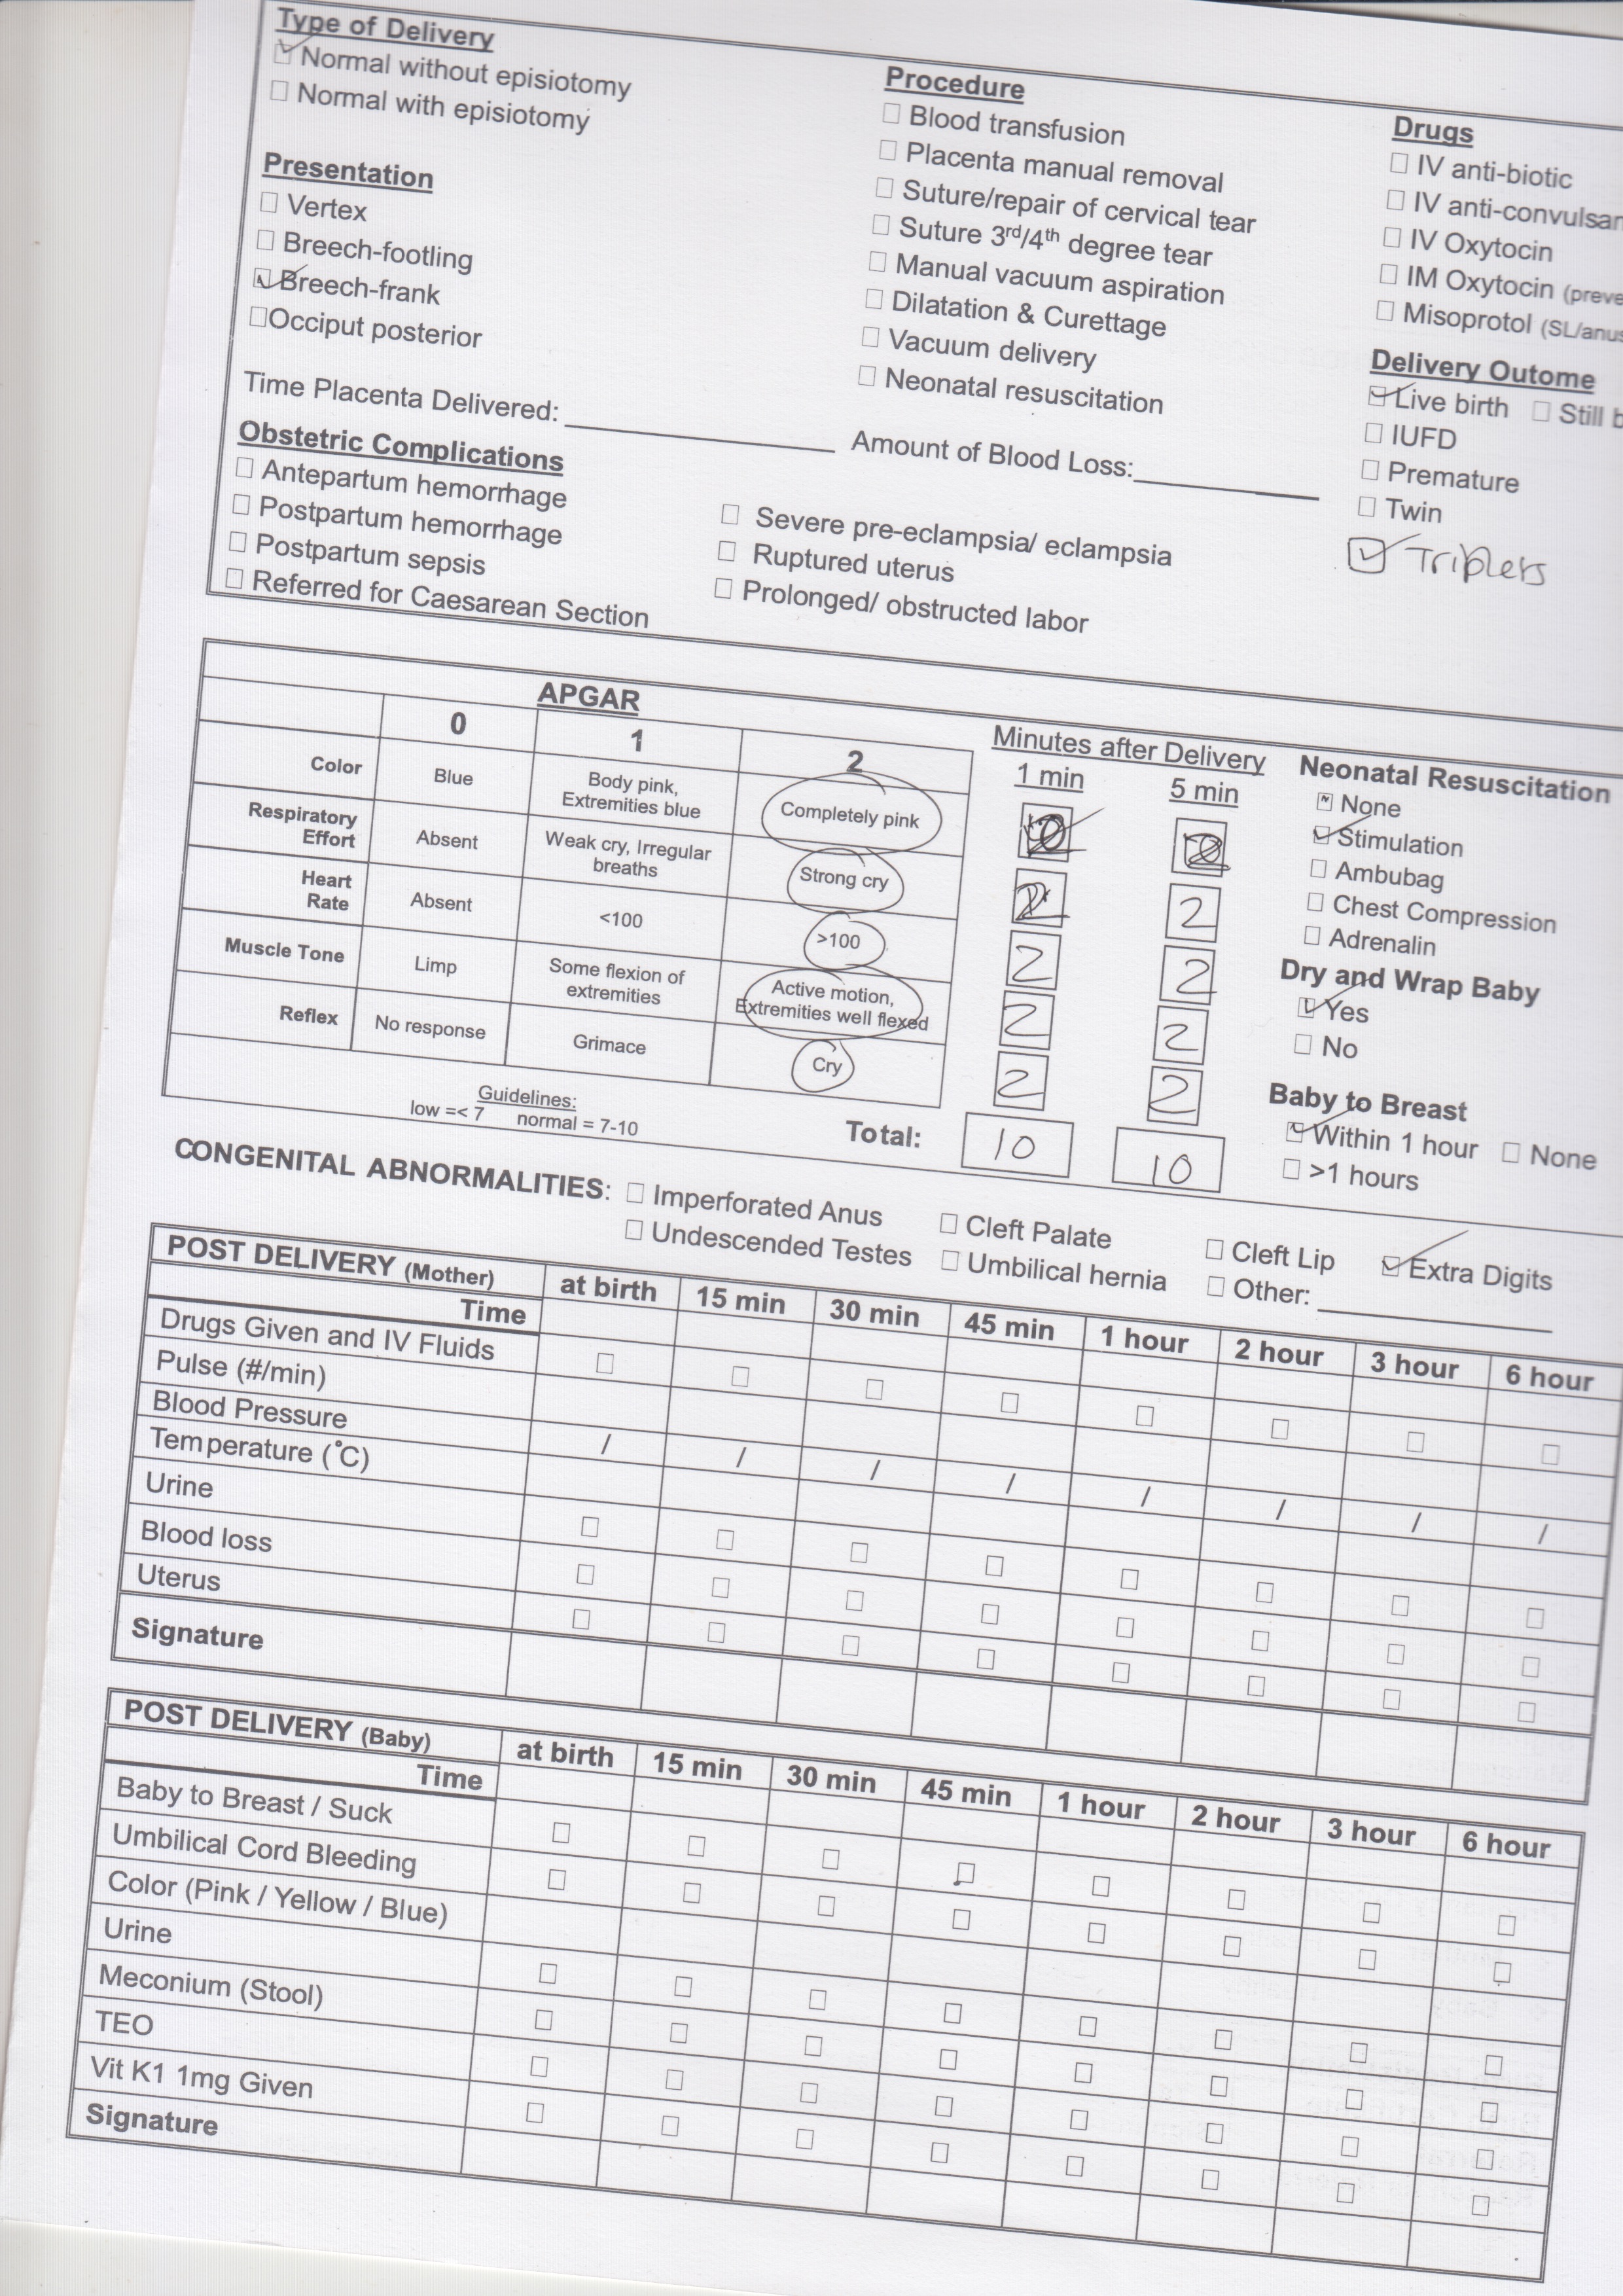 Type of Delivery
☑ Normal without episiotomy
☐ Normal with episiotomy
Presentation
☐ Vertex
☐ Breech-footling
☑ Breech-frank
☐ Occiput posterior
Time Placenta Delivered:
Procedure
☐ Blood transfusion
☐ Placenta manual removal
☐ Suture/repair of cervical tear
☐ Suture 3rd/4th degree tear
☐ Manual vacuum aspiration
☐ Dilatation & Curettage
☐ Vacuum delivery
☐ Neonatal resuscitation
Amount of Blood Loss:
Drugs
☐ IV anti-biotic
☐ IV anti-convulsan
☐ IV Oxytocin
☐ IM Oxytocin (preve
☐ Misoprotol (SL/anus
Delivery Outome
☑ Live birth ☐ Still b
☐ IUFD
☐ Premature
☐ Twin
☑ Triplets
Obstetric Complications
☐ Antepartum hemorrhage
☐ Postpartum hemorrhage
☐ Postpartum sepsis
☐ Referred for Caesarean Section
☐ Severe pre-eclampsia/ eclampsia
☐ Ruptured uterus
☐ Prolonged/ obstructed labor
APGAR
0 1 2
Color Blue Body pink, Extremities blue Completely pink
Respiratory Effort Absent Weak cry, Irregular breaths Strong cry
Heart Rate Absent <100 >100
Muscle Tone Limp Some flexion of extremities Active motion, Extremities well flexed
Reflex No response Grimace Cry
Guidelines:
low =< 7 normal = 7-10
Minutes after Delivery
1 min 5 min
2
2 2
2 2
2 2
Total: 10 10
Neonatal Resuscitation
None
☑ Stimulation
☐ Ambubag
☐ Chest Compression
☐ Adrenalin
Dry and Wrap Baby
☑ Yes
☐ No
Baby to Breast
☑ Within 1 hour ☐ None
☐ >1 hours
CONGENITAL ABNORMALITIES: ☐ Imperforated Anus ☐ Cleft Palate ☐ Cleft Lip ☑ Extra Digits
☐ Undescended Testes ☐ Umbilical hernia ☐ Other:
POST DELIVERY (Mother) at birth 15 min 30 min 45 min 1 hour 2 hour 3 hour 6 hour
Time
Drugs Given and IV Fluids ☐ ☐ ☐ ☐ ☐ ☐ ☐ ☐
Pulse (#/min)
Blood Pressure / / / / / / / /
Temperature (°C)
Urine ☐ ☐ ☐ ☐ ☐ ☐ ☐ ☐
Blood loss ☐ ☐ ☐ ☐ ☐ ☐ ☐ ☐
Uterus ☐ ☐ ☐ ☐ ☐ ☐ ☐ ☐
Signature
POST DELIVERY (Baby) at birth 15 min 30 min 45 min 1 hour 2 hour 3 hour 6 hour
Time
Baby to Breast / Suck ☐ ☐ ☐ ☐ ☐ ☐ ☐ ☐
Umbilical Cord Bleeding ☐ ☐ ☐ ☐ ☐ ☐ ☐ ☐
Color (Pink / Yellow / Blue)
Urine ☐ ☐ ☐ ☐ ☐ ☐ ☐ ☐
Meconium (Stool) ☐ ☐ ☐ ☐ ☐ ☐ ☐ ☐
TEO ☐ ☐ ☐ ☐ ☐ ☐ ☐ ☐
Vit K1 1mg Given ☐ ☐ ☐ ☐ ☐ ☐ ☐ ☐
Signature